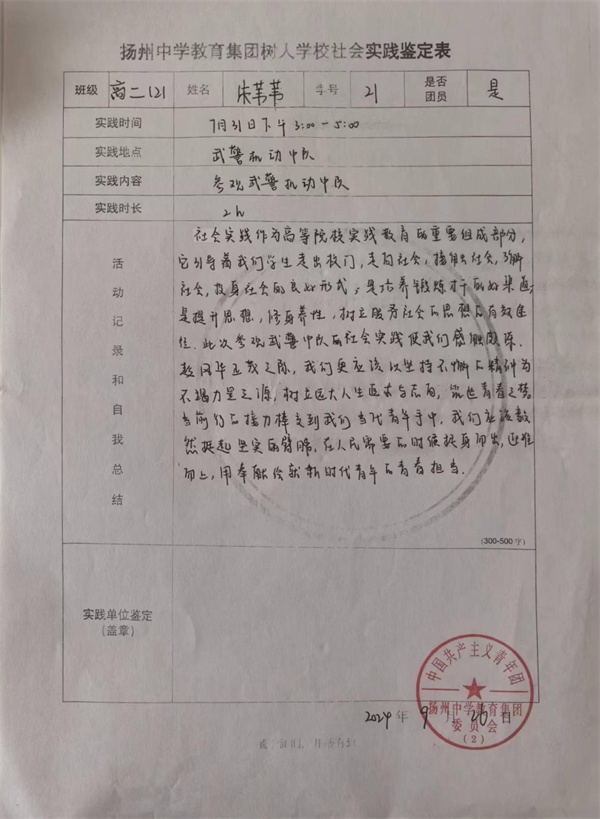 扬州中学教育集团树人学校社会实践鉴定表
班级 高二121 姓名 朱芾芾 学号 21 是否团员 是
实践时间 7月31日下午3:00-5:00
实践地点 武警机动中队
实践内容 参观武警机动中队
实践时长 2h
活动记录和自我总结
社会实践作为高等院校实践教育的重要组成部分,
它引导着我们学生走出校门,走向社会,接触社会,了解
社会,投身社会的良好形式;是培养锻炼才干的好渠道;
是提升思想,修身养性,树立服务社会的思想的有效途
径.此次参观武警中队的社会实践使我们感触颇深.
数风华正茂之际,我们更应该以坚持不懈的精神为
不竭力量之源,树立远大人生追求与志向,
当前行的接力棒交到我们当代青年手中,我们应该毅
然挺起坚实的臂膀,在人民需要的时候挺身而出,迎难
而上,用奉献绘就新时代青年的青春担当.
(300-500字)
实践单位鉴定
(盖章)
中国共产主义青年团
扬州中学教育集团
委员会
(2)
2024年9月26日